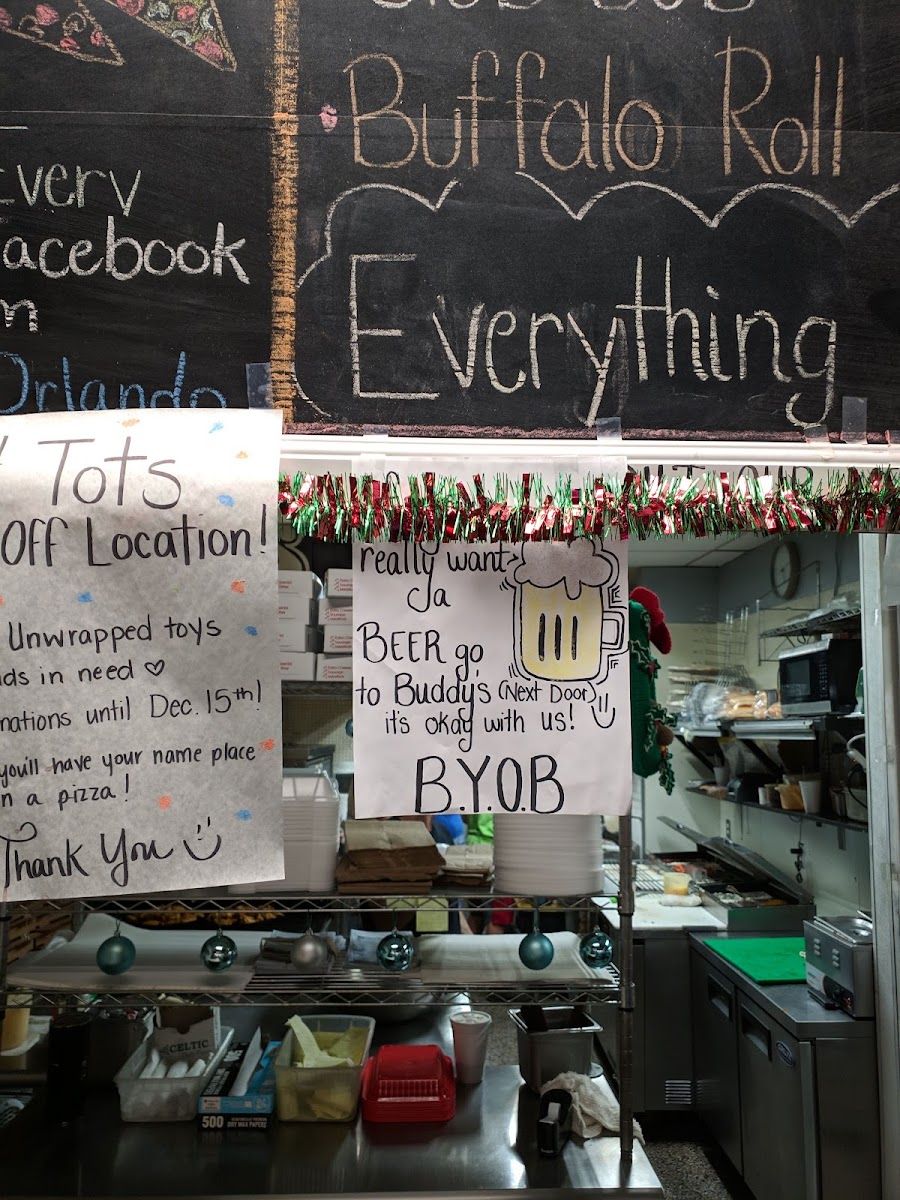 Buffalo Roll
Everything
Every
Facebook
Orlando
Tots
OFF Location!
Unwrapped toys
in need ♡
until Dec. 15th!
you'll have your name place
a pizza!
Thank You
really want
a
BEER go
to Buddy's (Next Door)
it's okay with us!
B.Y.O.B
CELTIC
500
DRY WAX PAPERS